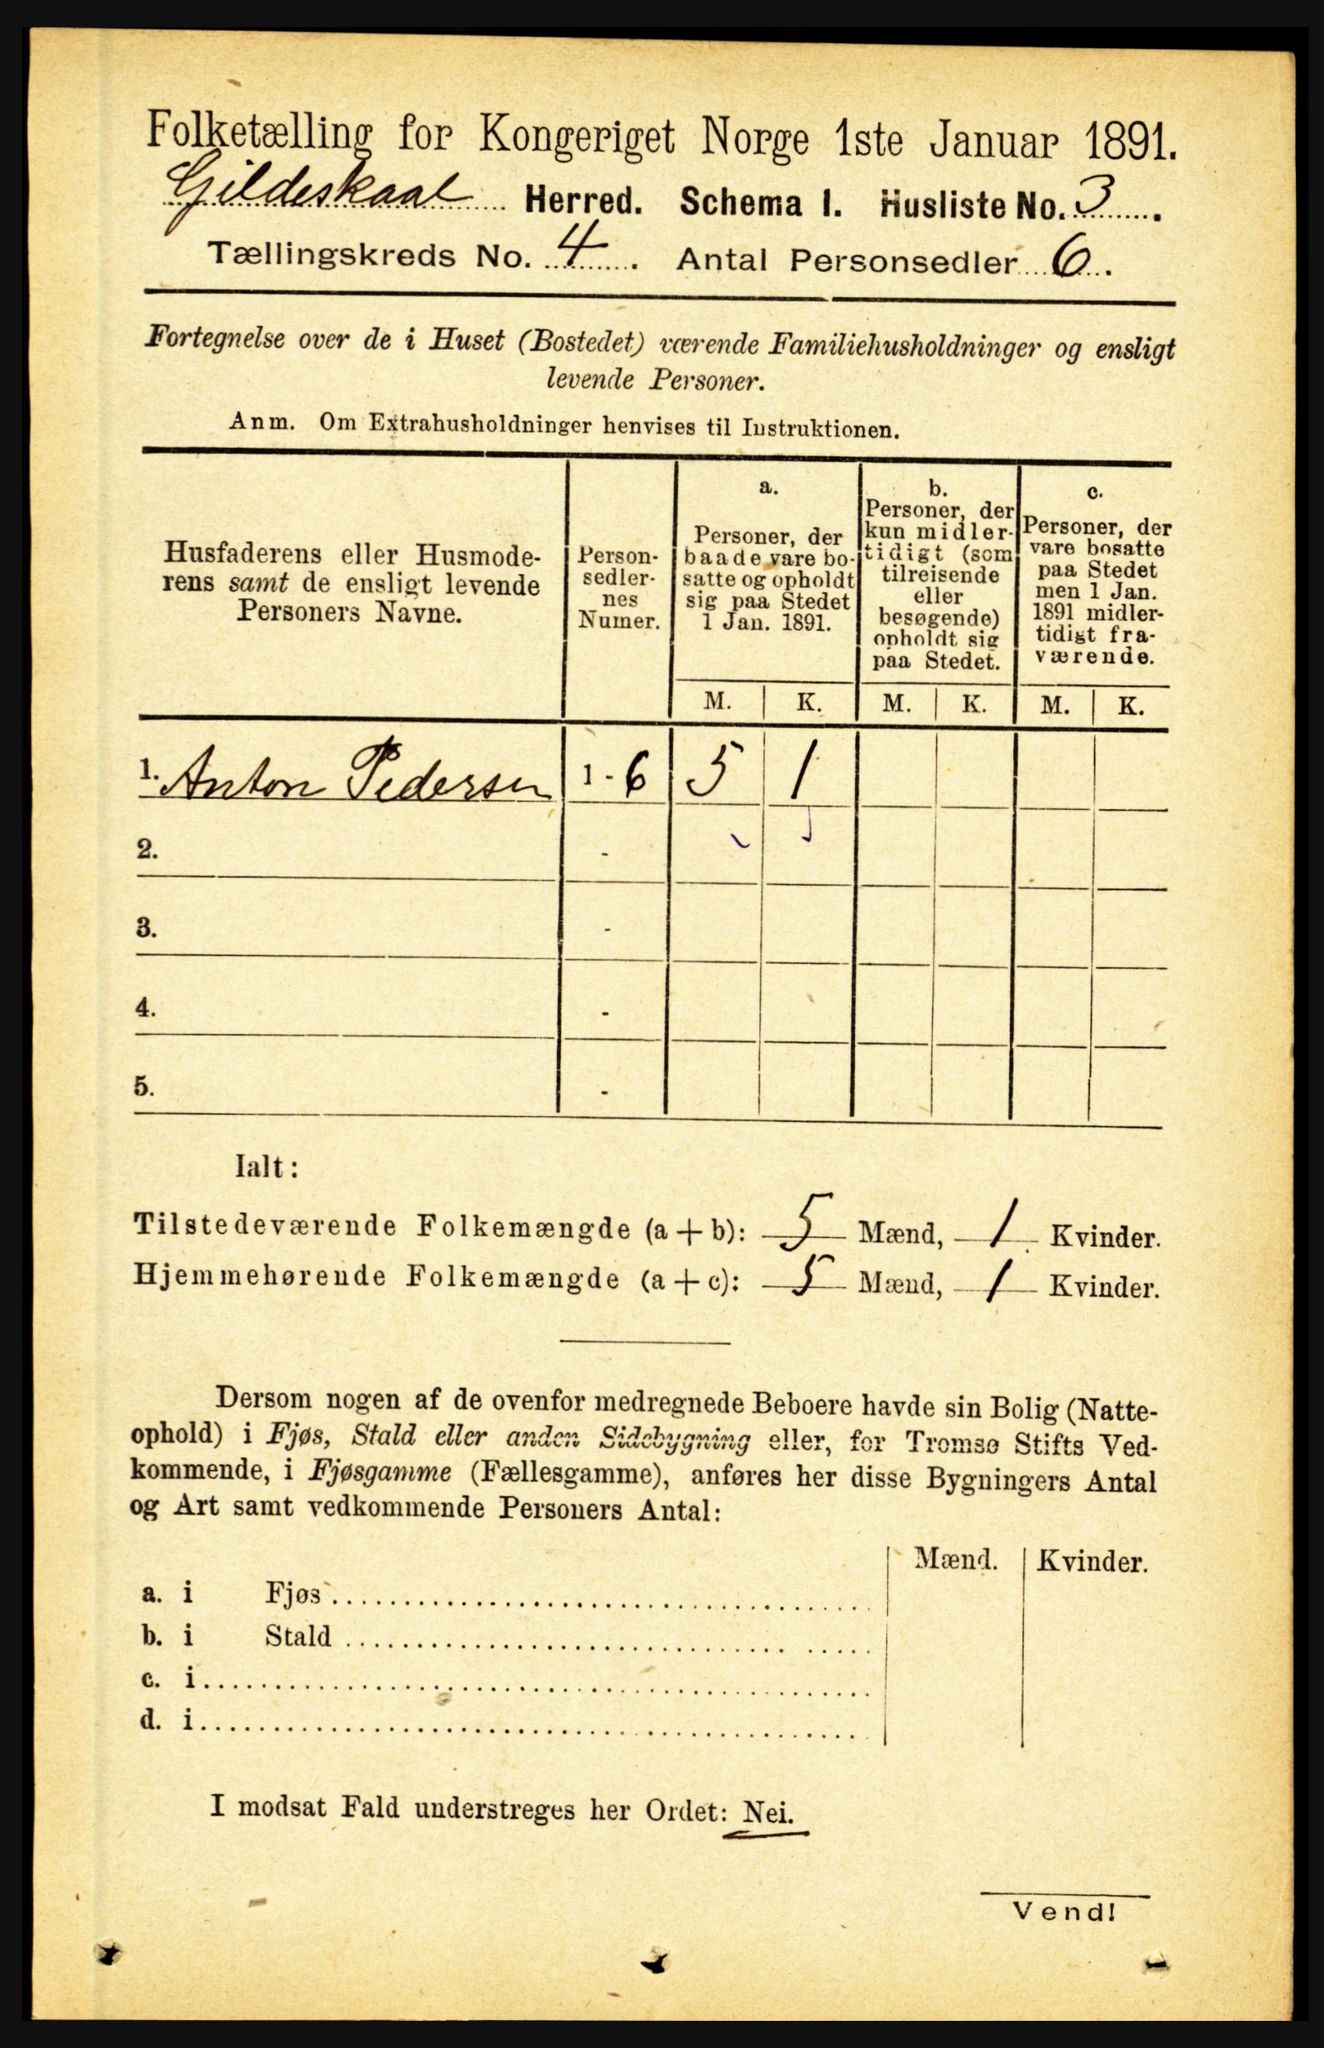 Folketælling for Kongeriget Norge 1ste Januar 1891.
Gildeskaal Herred. Schema 1. Husliste No. 3.
Tællingskreds No. 4. Antal Personsedler 6.
Fortegnelse over de i Huset (Bostedet) værende Familiehusholdninger og ensligt
levende Personer.
Anm. Om Extrahusholdninger henvises til Instruktionen.
Husfaderens eller Husmode-
rens samt de ensligt levende
Personers Navne.
Person-
sedler-
nes
Numer.
a.
Personer, der
baade vare bo-
satte og opholdt
sig paa Stedet
1 Jan. 1891.
b.
Personer, der
kun midler-
tidigt (som
tilreisende
eller
besøgende)
opholdt sig
paa Stedet.
c.
Personer, der
vare bosatte
paa Stedet
men 1 Jan.
1891 midler-
tidigt fra-
værende.
M. K. M. K. M. K.
1. Anton Pedersen 1 - 6 5 1
2. -
3. -
4. -
5. -
Ialt:
Tilstedeværende Folkemængde (a + b): 5 Mænd, 1 Kvinder.
Hjemmehørende Folkemængde (a + c): 5 Mænd, 1 Kvinder.
Dersom nogen af de ovenfor medregnede Beboere havde sin Bolig (Natte-
ophold) i Fjøs, Stald eller anden Sidebygning eller, for Tromsø Stifts Ved-
kommende, i Fjøsgamme (Fællesgamme), anføres her disse Bygningers Antal
og Art samt vedkommende Personers Antal:
Mænd. Kvinder.
a. i Fjøs
b. i Stald
c. i
d. i
I modsat Fald understreges her Ordet: Nei.
Vend!